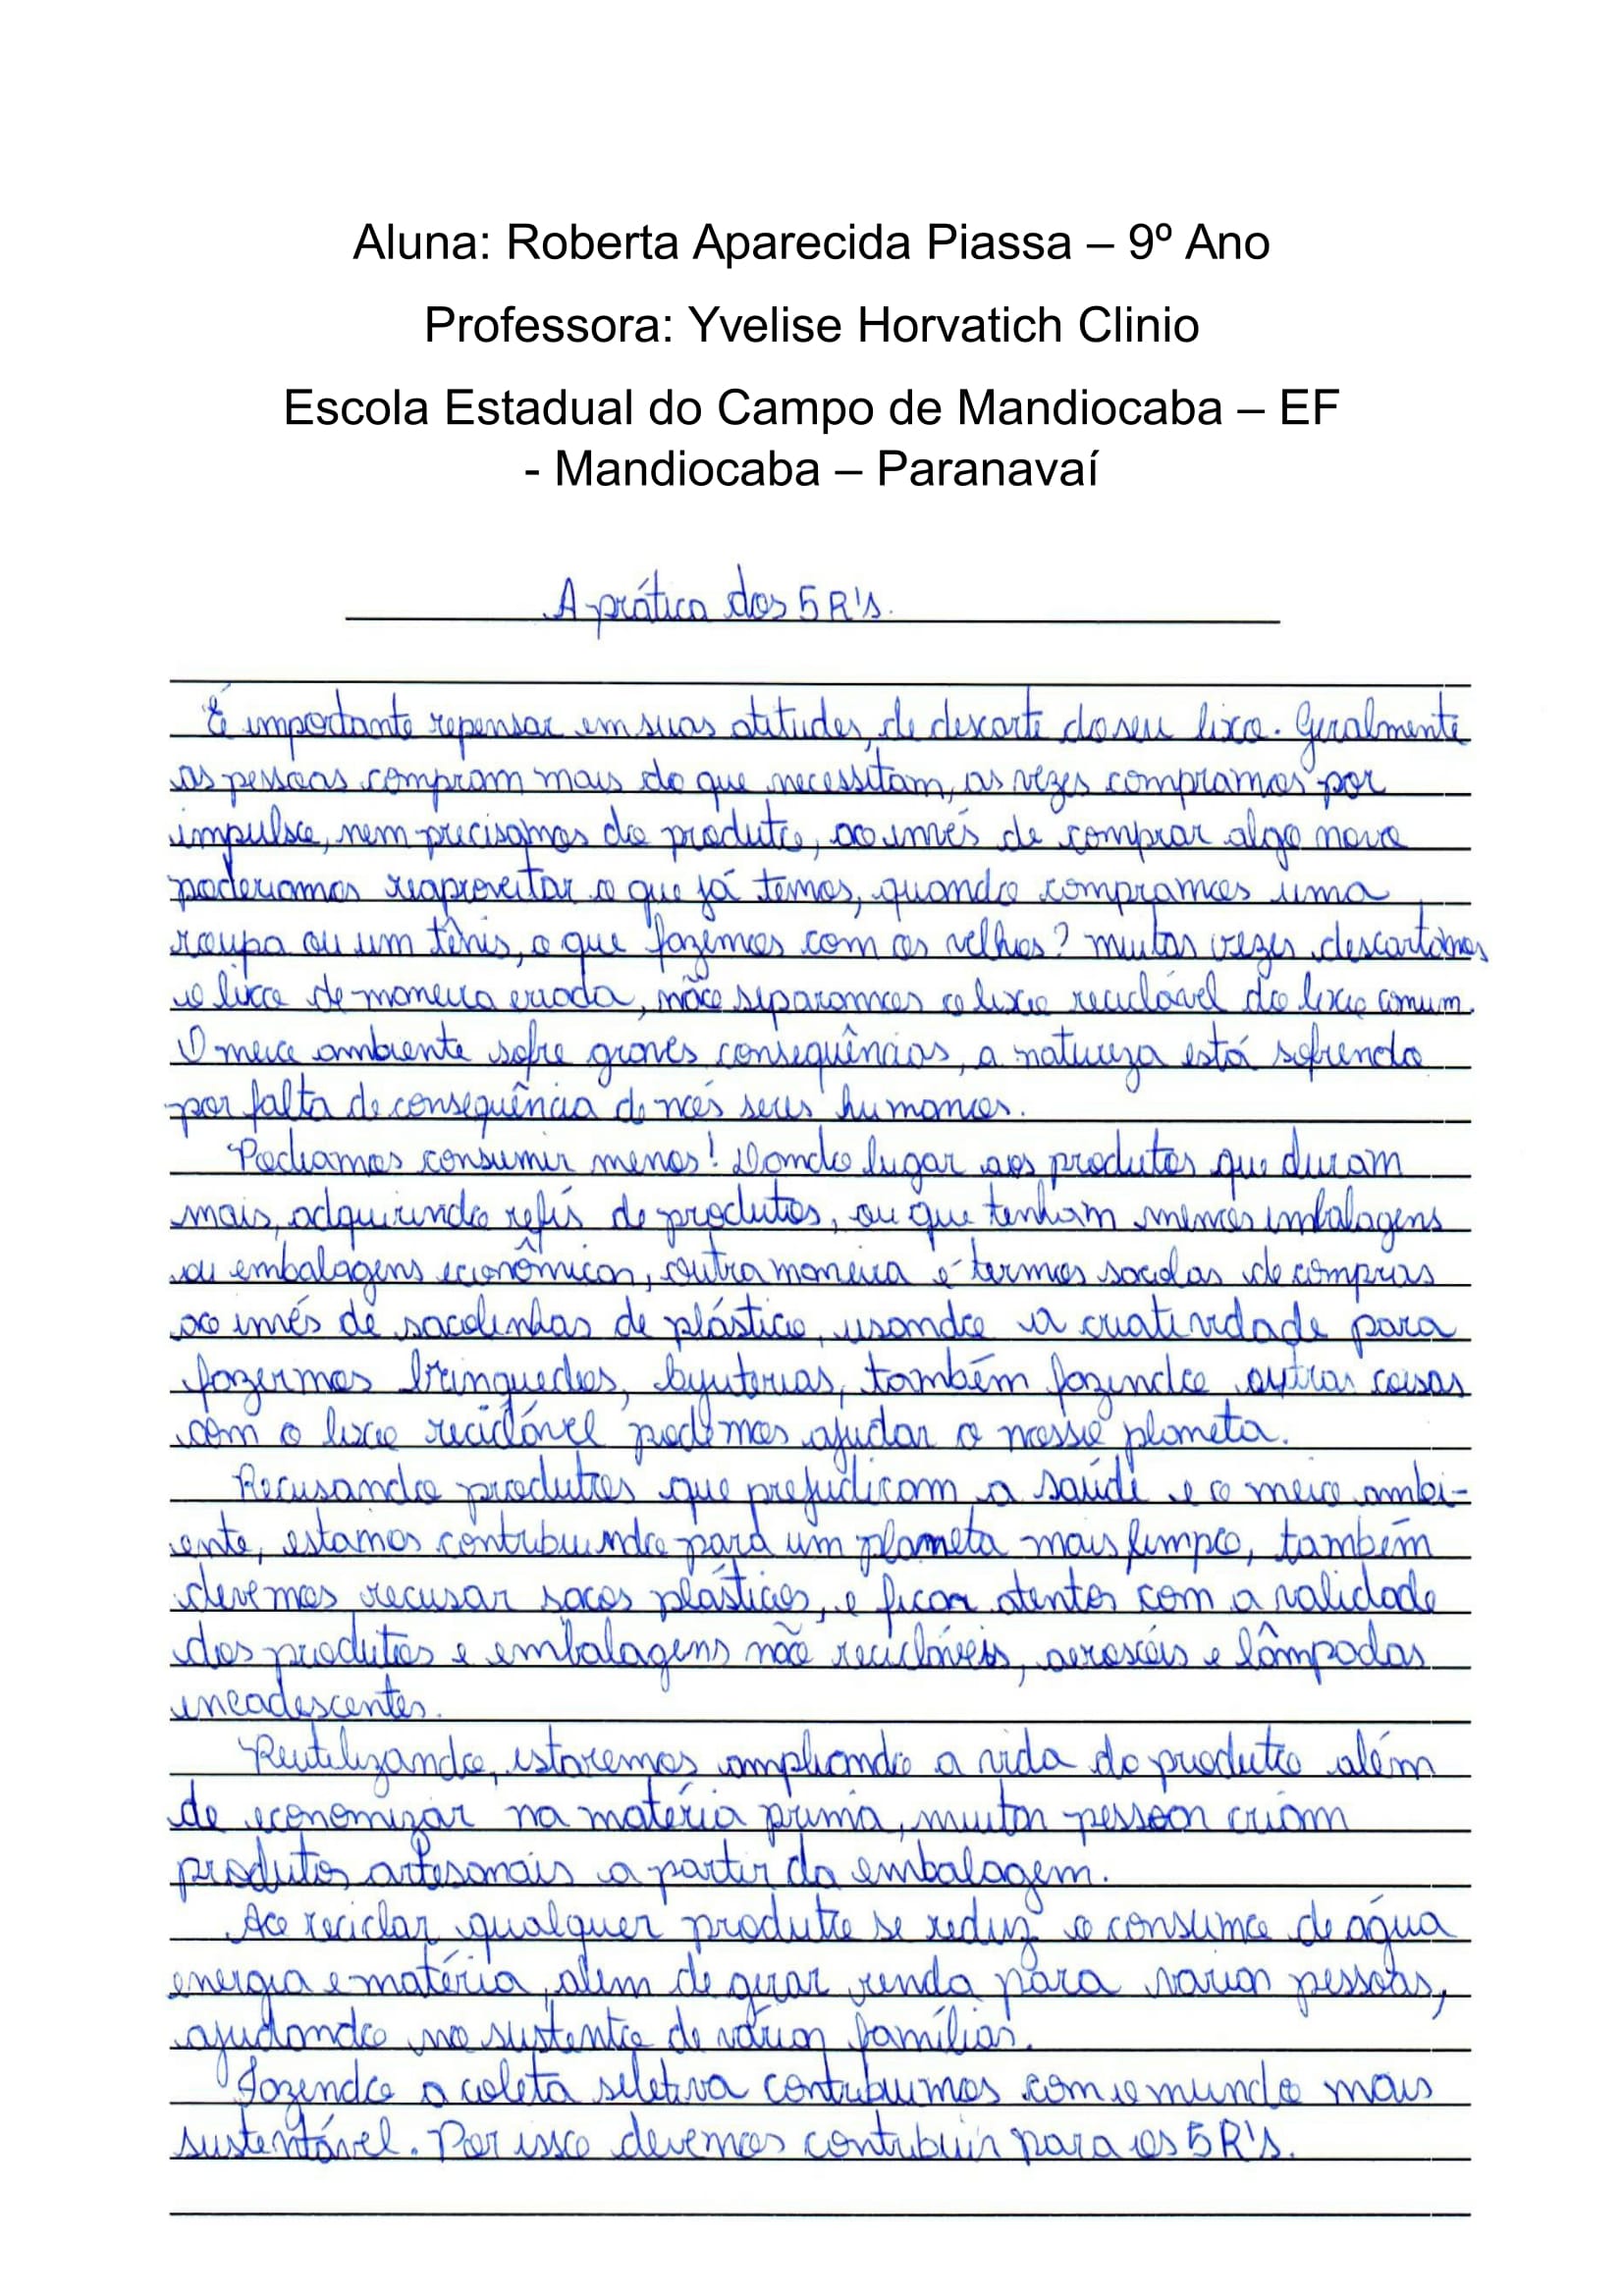 Aluna: Roberta Aparecida Piassa – 9º Ano
Professora: Yvelise Horvatich Clinio
Escola Estadual do Campo de Mandiocaba – EF
- Mandiocaba – Paranavaí
A prática dos 5 R's.
É importante repensar em suas atitudes, de descarte do seu lixo. Geralmente
as pessoas compram mais do que necessitam, as vezes compramos por
impulso, nem precisamos do produto, ao invés de comprar algo novo
poderiamos reaproveitar o que já temos, quando compramos uma
roupa ou um tênis, o que fazemos com os velhos? muitas vezes descartamos
o lixo de maneira errada, não separamos o lixo reciclável do lixo comum.
O meio ambiente sofre graves consequências, a natureza está sofrendo
por falta de consequência de nós seres humanos.
Podiamos consumir menos! Dando lugar aos produtos que duram
mais, adquirindo refis de produtos, ou que tenham menos embalagens
ou embalagens econômicas, outra maneira é termos sacolas de compras
ao invés de sacolinhas de plástico, usando a criatividade para
fazermos brinquedos, byuterias, também fazendo outras coisas
com o lixo reciclável podemos ajudar o nosso planeta.
Recusando produtos que prejudicam a saúde e o meio ambi-
ente, estamos contribuindo para um planeta mais limpo, também
devemos recusar sacos plásticos, e ficar atentos com a validade
dos produtos e embalagens não recicláveis, aerosóis e lâmpadas
incadescentes.
Reutilizando, estaremos ampliando a vida do produto além
de economizar na matéria prima, muitas pessoas criam
produtos artesanais a partir da embalagem.
Ao reciclar qualquer produto se reduz o consumo de água
energia e matéria, alem de gerar renda para varias pessoas,
ajudando no sustento de várias famílias.
Fazendo a coleta seletiva contribuimos com o mundo mais
sustentável. Por isso devemos contribuir para os 5 R's.